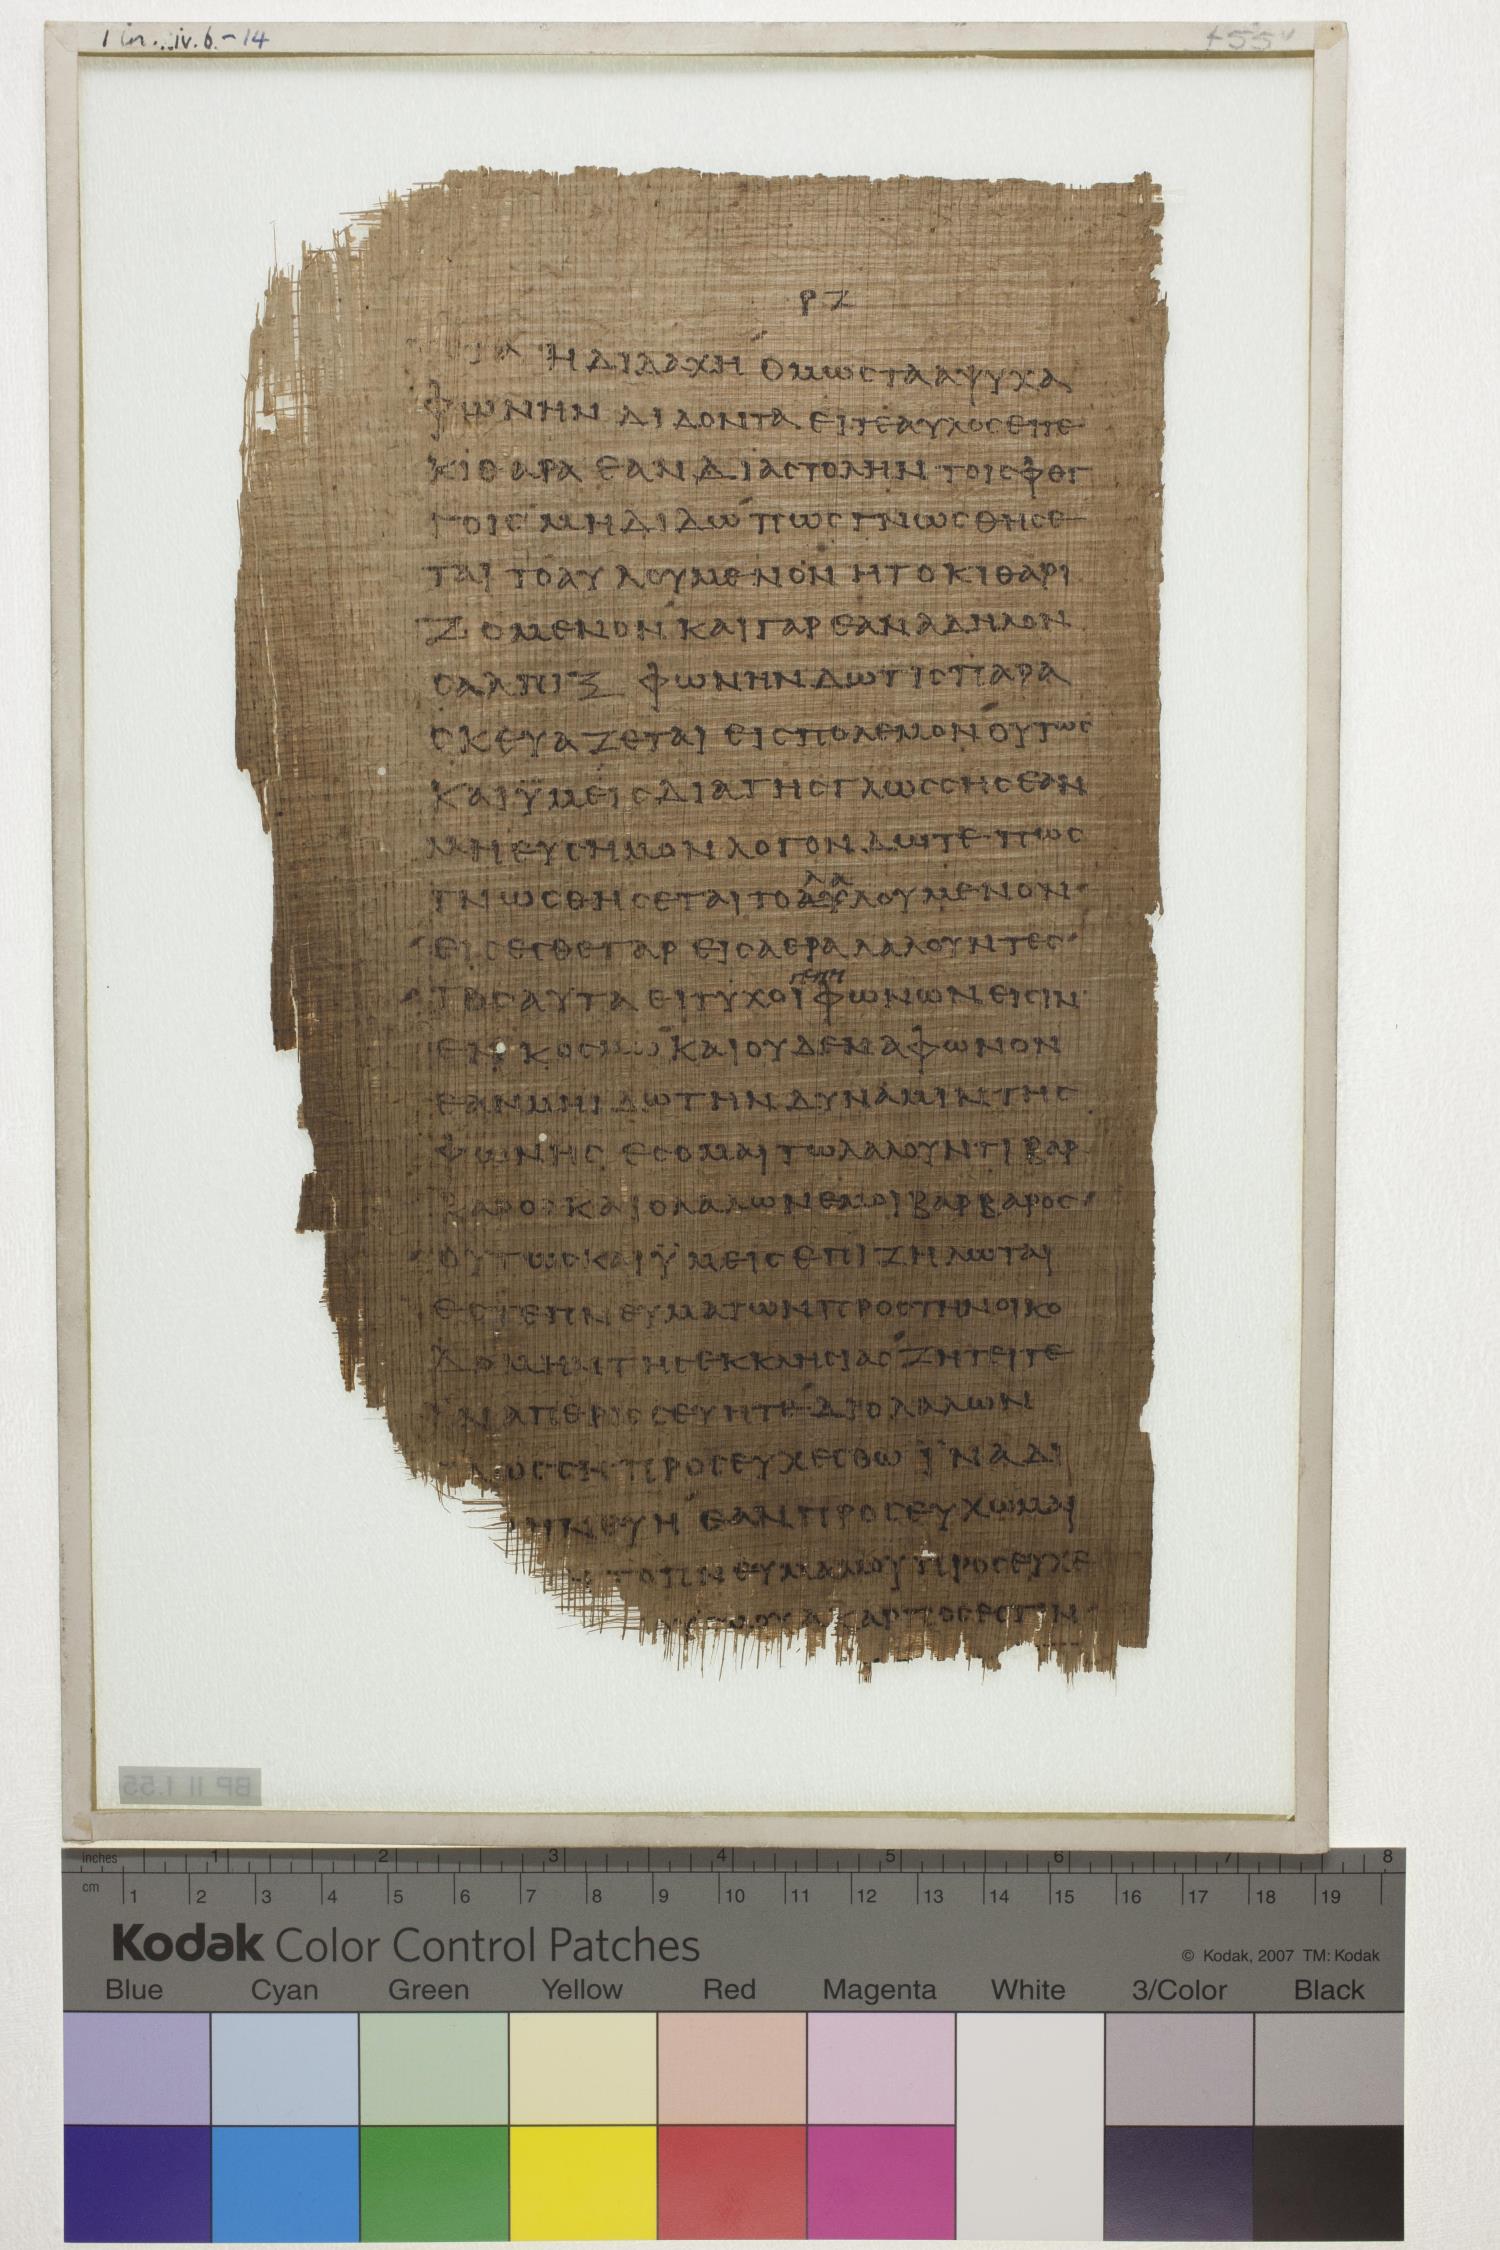 1 Cor. xiv. 6-14
f 55 v
ΡΖ
Η ΔΙΔΑΧΗ ΟΜΩΣ ΤΑ ΑΨΥΧΑ
ΦΩΝΗΝ ΔΙΔΟΝΤΑ ΕΙΤΕ ΑΥΛΟΣ ΕΙΤΕ
ΚΙΘΑΡΑ ΕΑΝ ΔΙΑΣΤΟΛΗΝ ΤΟΙΣ ΦΘΓ
ΓΟΙΣ ΜΗ ΔΙΔΩ ΠΩΣ ΓΝΩΣΘΗΣΕ
ΤΑΙ ΤΟ ΑΥΛΟΥΜΕΝΟΝ Η ΤΟ ΚΙΘΑΡΙ
ΖΟΜΕΝΟΝ ΚΑΙ ΓΑΡ ΕΑΝ ΑΔΗΛΟΝ
ΣΑΛΠΙΞ ΦΩΝΗΝ ΔΩ ΤΙΣ ΠΑΡΑ
ΣΚΕΥΑΖΕΤΑΙ ΕΙΣ ΠΟΛΕΜΟΝ ΟΥΤΩΣ
ΚΑΙ ΫΜΕΙΣ ΔΙΑ ΤΗΣ ΓΛΩΣΣΗΣ ΕΑΝ
ΜΗ ΕΥΣΗΜΟΝ ΛΟΓΟΝ ΔΩΤΕ ΠΩΣ
ΛΑ
ΓΝΩΣΘΗΣΕΤΑΙ ΤΟ ΑΥΛΟΥΜΕΝΟΝ
ΕΙΣ ΕΣΘΕ ΓΑΡ ΕΙΣ ΑΕΡΑ ΛΑΛΟΥΝΤΕΣ
ΓΕΝΗ
ΤΟΣΑΥΤΑ ΕΙ ΤΥΧΟΙ ΦΩΝΩΝ ΕΙΣΙΝ
ΕΝ ΚΟΣΜΩ ΚΑΙ ΟΥΔΕΝ ΑΦΩΝΟΝ
ΕΑΝ ΜΗ ΙΔΩ ΤΗΝ ΔΥΝΑΜΙΝ ΤΗΣ
ΦΩΝΗΣ ΕΣΟΜΑΙ ΤΩ ΛΑΛΟΥΝΤΙ ΒΑΡ
ΒΑΡΟΣ ΚΑΙ Ο ΛΑΛΩΝ ΕΜΟΙ ΒΑΡΒΑΡΟΣ
ΟΥΤΩΣ ΚΑΙ ΫΜΕΙΣ ΕΠΙ ΖΗΛΩΤΑΙ
ΕΣΤΕ ΠΝΕΥΜΑΤΩΝ ΠΡΟΣ ΤΗΝ ΟΙΚΟ
ΔΟΜΗΝ ΤΗΣ ΕΚΚΛΗΣΙΑΣ ΖΗΤΕΙΤΕ
ΙΝΑ ΠΕΡΙΣΣΕΥΗΤΕ ΔΙΟ Ο ΛΑΛΩΝ
ΛΩΣΣΗ ΠΡΟΣΕΥΧΕΣΘΩ ΪΝΑ ΔΙ
ΜΗΝΕΥΗ ΕΑΝ ΠΡΟΣΕΥΧΩΜΑΙ
ΤΟ ΠΝΕΥΜΑ ΜΟΥ ΠΡΟΣΕΥΧΕ
ΥΣ ΜΟΥ ΑΚΑΡΠΟΣ ΕΣΤΙΝ
BP II f.55
inches 1 2 3 4 5 6 7 8
cm 1 2 3 4 5 6 7 8 9 10 11 12 13 14 15 16 17 18 19
Kodak Color Control Patches
© Kodak, 2007 TM: Kodak
Blue Cyan Green Yellow Red Magenta White 3/Color Black